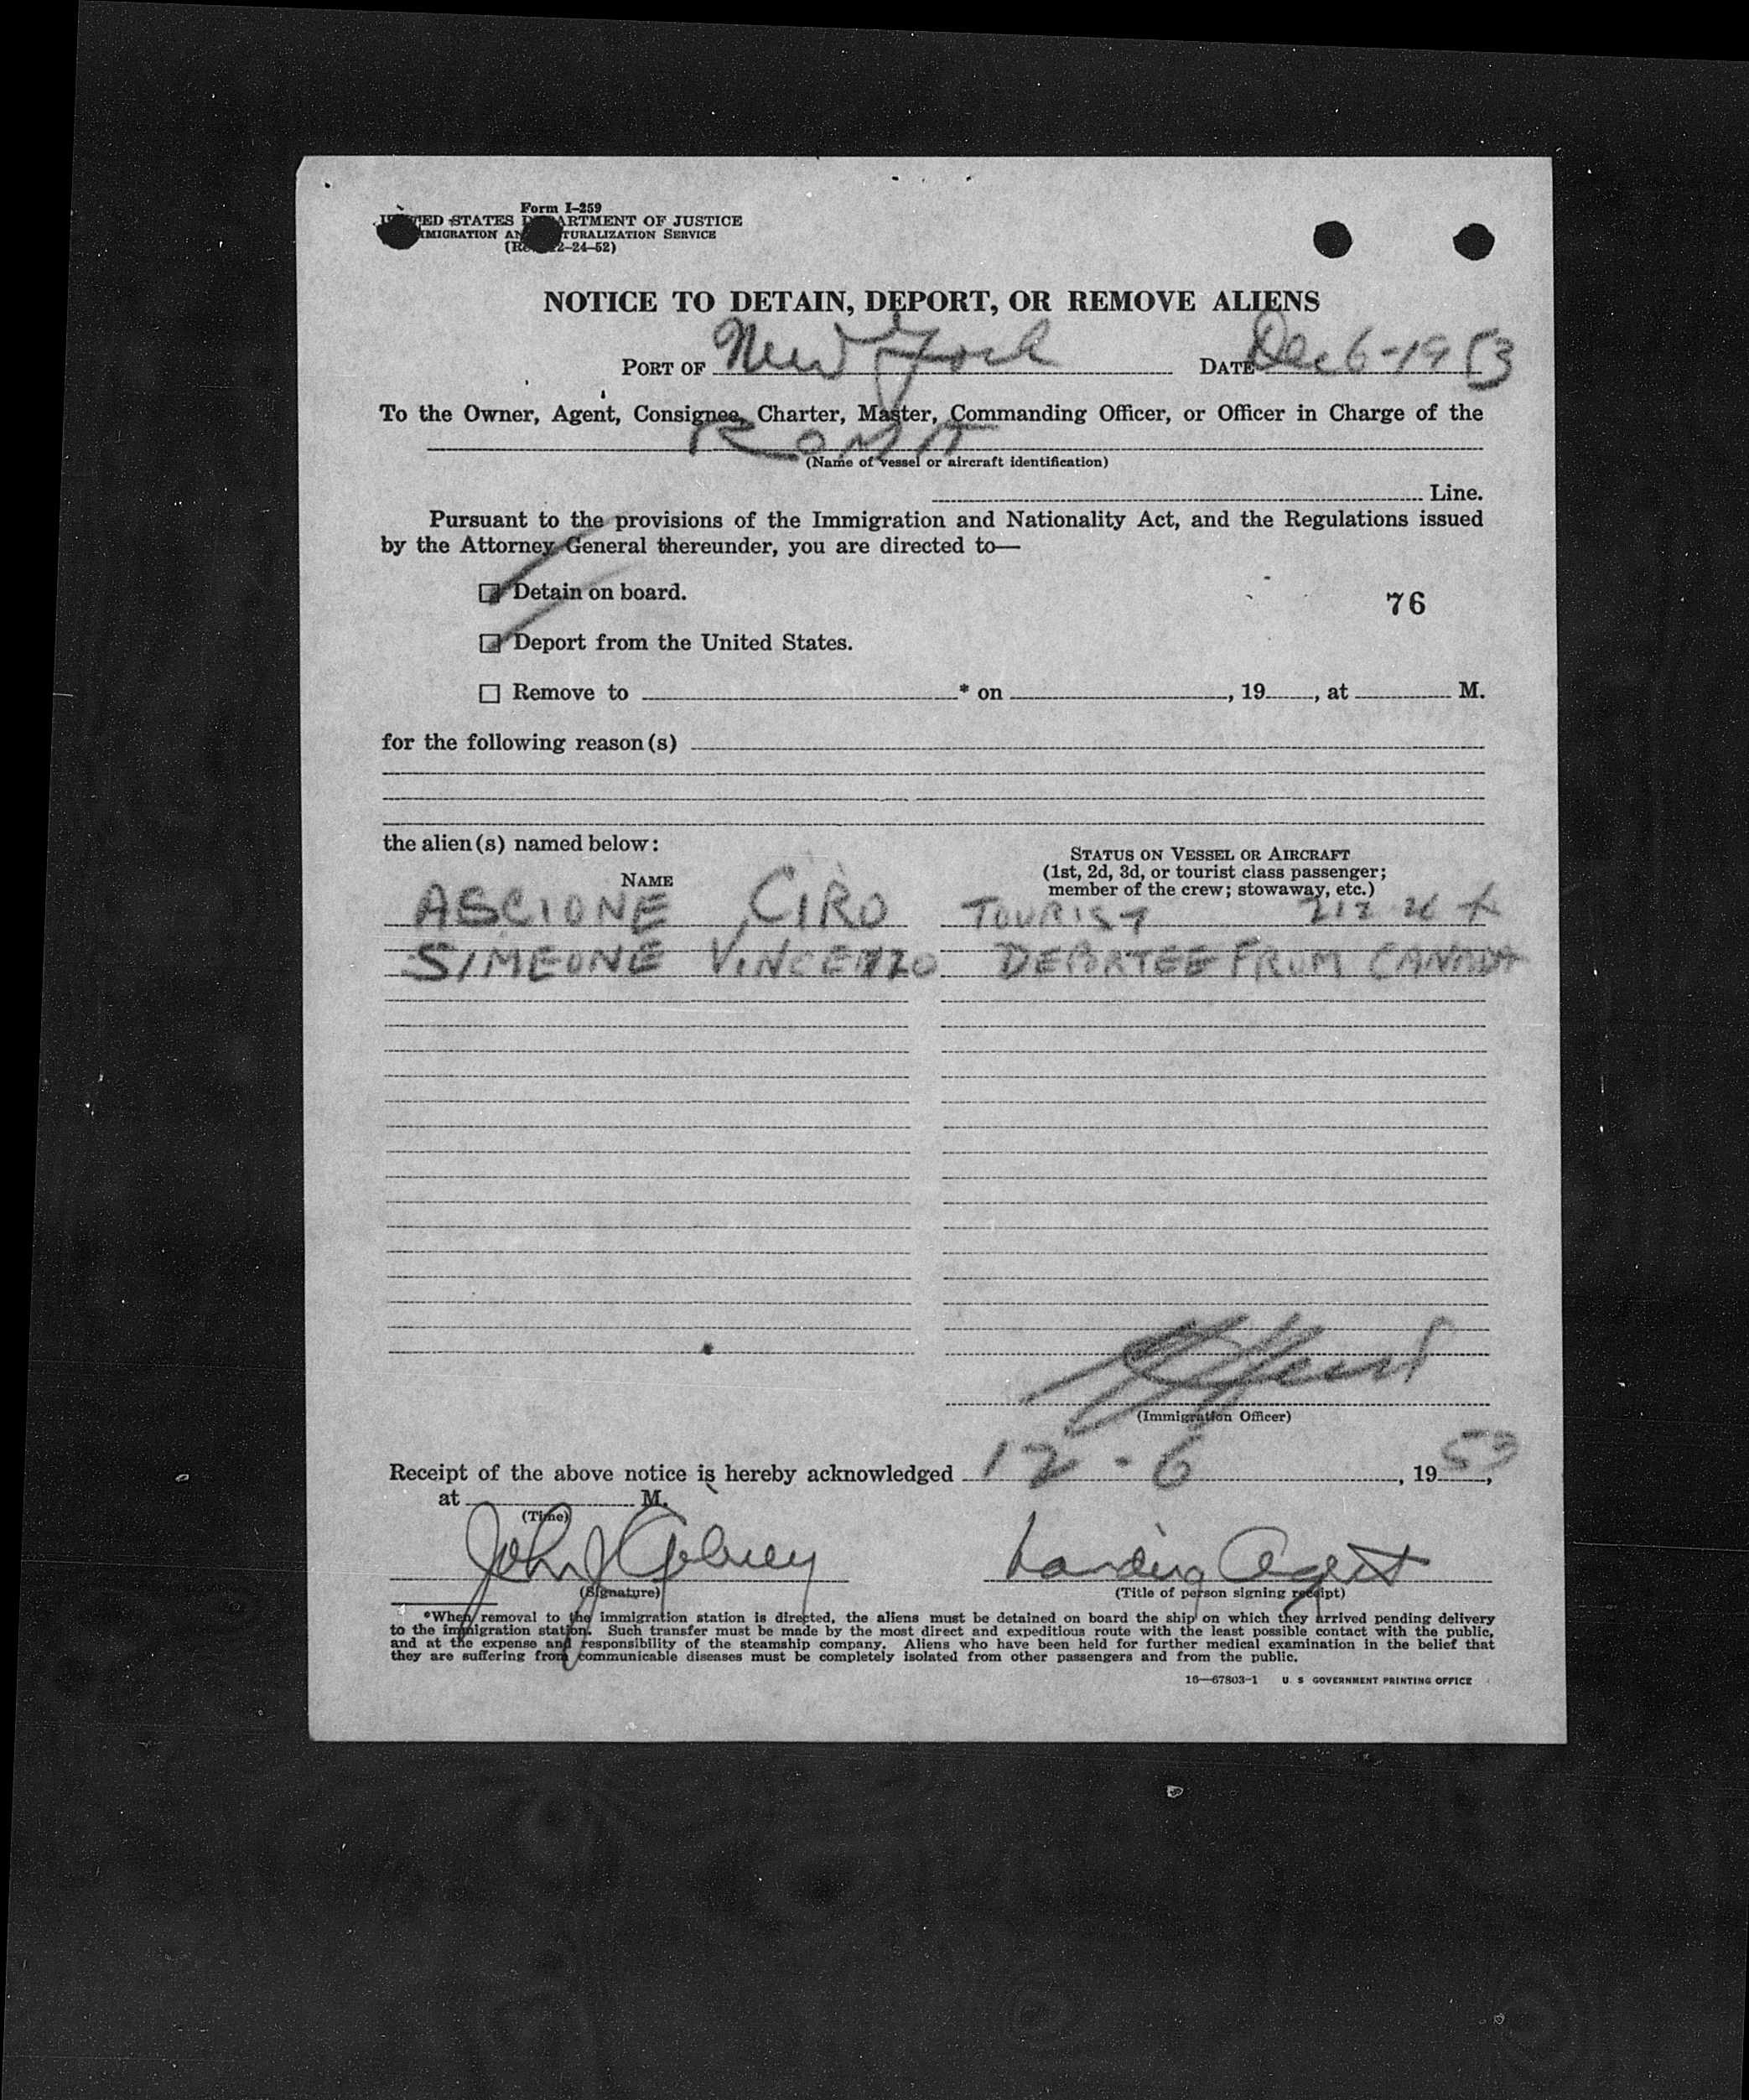 Form I-259
UNITED STATES DEPARTMENT OF JUSTICE
IMMIGRATION AND NATURALIZATION SERVICE
(Rev. 12-24-52)
NOTICE TO DETAIN, DEPORT, OR REMOVE ALIENS
PORT OF New York DATE Dec 6-1953
To the Owner, Agent, Consignee, Charter, Master, Commanding Officer, or Officer in Charge of the
ROMA
(Name of vessel or aircraft identification)
Line.
Pursuant to the provisions of the Immigration and Nationality Act, and the Regulations issued
by the Attorney General thereunder, you are directed to—
Detain on board.
76
Deport from the United States.
Remove to * on , 19 , at M.
for the following reason(s)
the alien(s) named below:
STATUS ON VESSEL OR AIRCRAFT
(1st, 2d, 3d, or tourist class passenger;
member of the crew; stowaway, etc.)
NAME
ASCIONE CIRO TOURIST 212
SIMEONE VINCENZO DEPORTEE FROM CANADA
(Immigration Officer)
Receipt of the above notice is hereby acknowledged 12-6, 1953,
at M.
(Time)
John J Landing Agent
(Signature) (Title of person signing receipt)
*When removal to the immigration station is directed, the aliens must be detained on board the ship on which they arrived pending delivery
to the immigration station. Such transfer must be made by the most direct and expeditious route with the least possible contact with the public,
and at the expense and responsibility of the steamship company. Aliens who have been held for further medical examination in the belief that
they are suffering from communicable diseases must be completely isolated from other passengers and from the public.
16—67803-1 U S GOVERNMENT PRINTING OFFICE